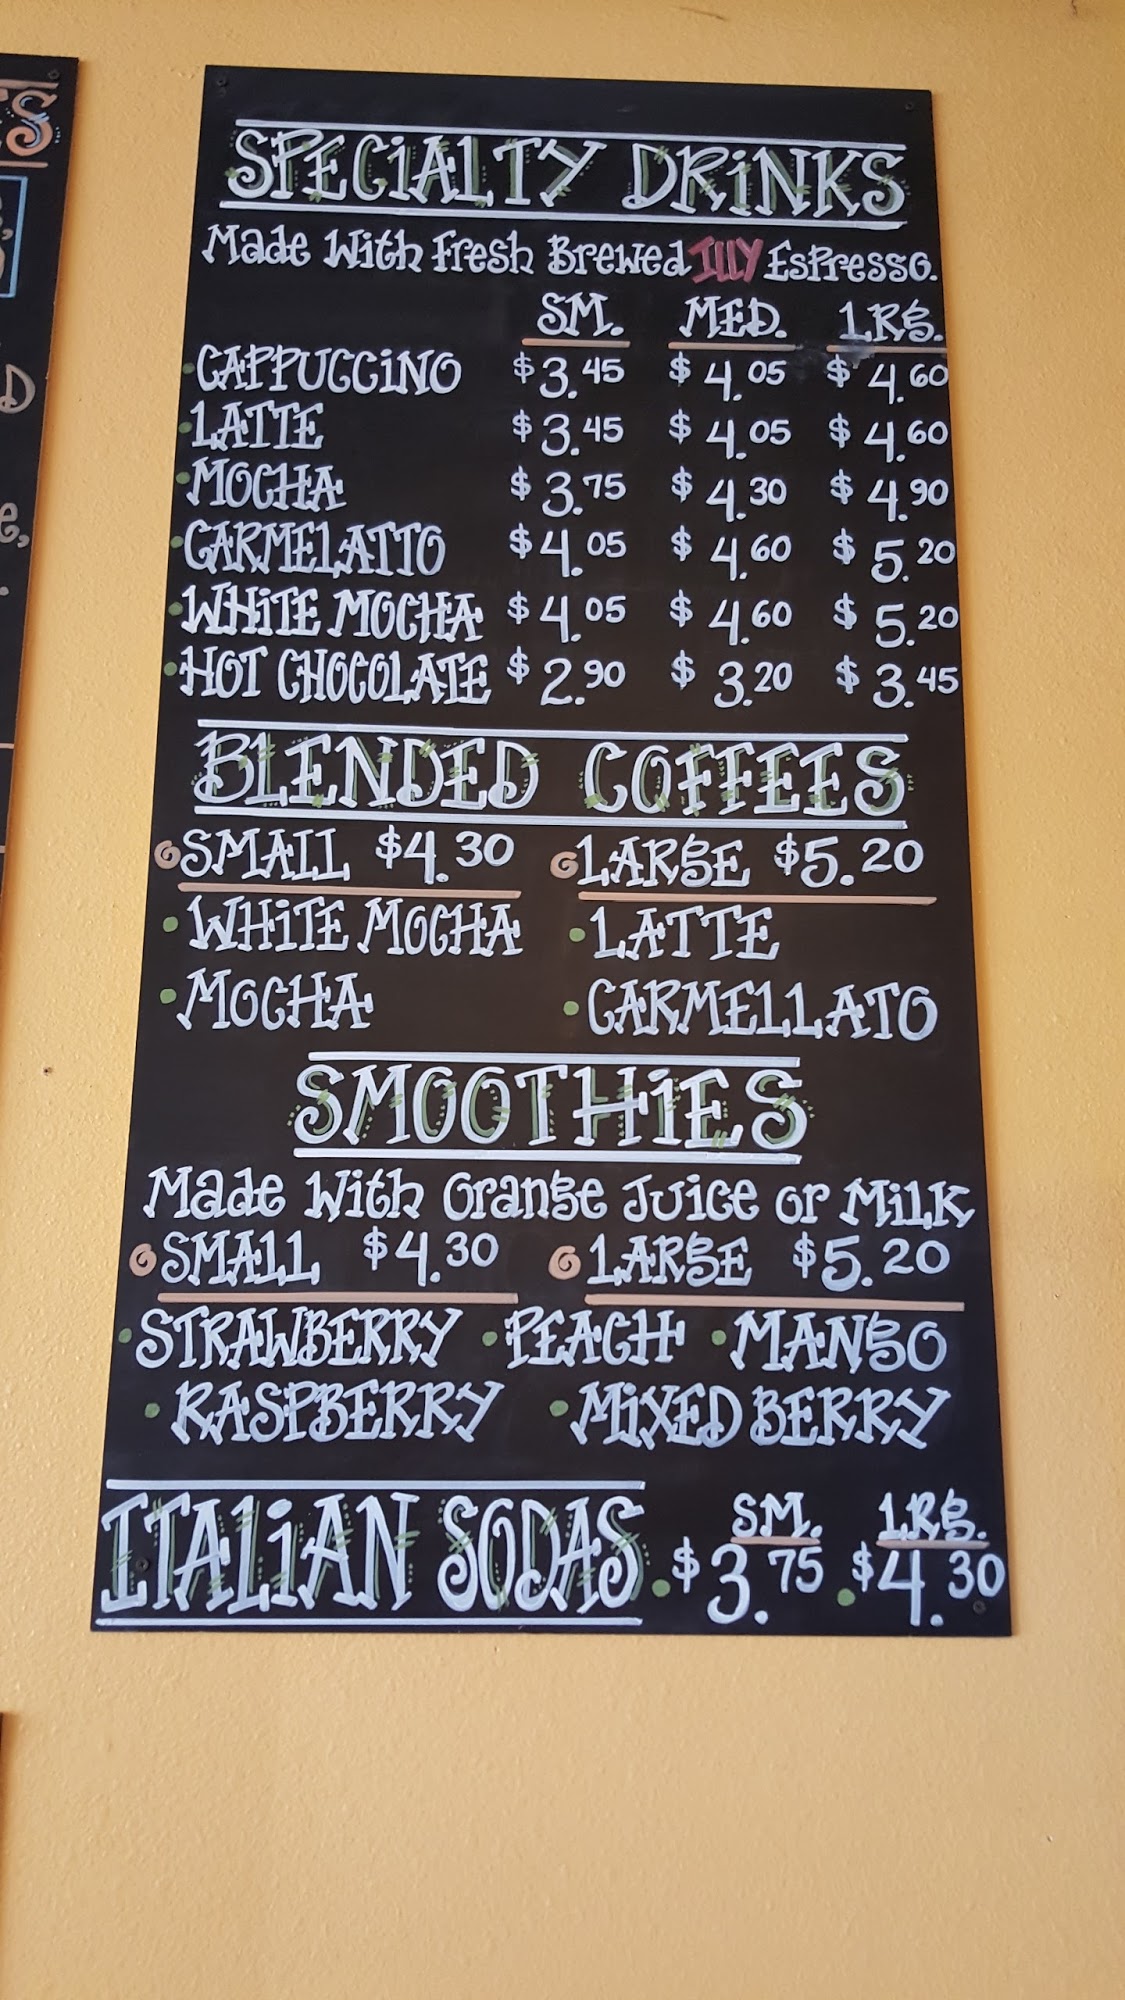 SPECIALTY DRINKS
Made With Fresh Brewed ILLY Espresso.
SM. MED. LRG.
• CAPPUCCINO $3.45 $4.05 $4.60
• LATTE $3.45 $4.05 $4.60
• MOCHA $3.75 $4.30 $4.90
• CARMELATTO $4.05 $4.60 $5.20
• WHITE MOCHA $4.05 $4.60 $5.20
• HOT CHOCOLATE $2.90 $3.20 $3.45
BLENDED COFFEES
SMALL $4.30 LARGE $5.20
• WHITE MOCHA • LATTE
• MOCHA • CARMELLATO
SMOOTHIES
Made With Orange Juice or Milk
SMALL $4.30 LARGE $5.20
• STRAWBERRY • PEACH • MANGO
• RASPBERRY • MIXED BERRY
SM. LRG.
ITALIAN SODAS • $3.75 • $4.30